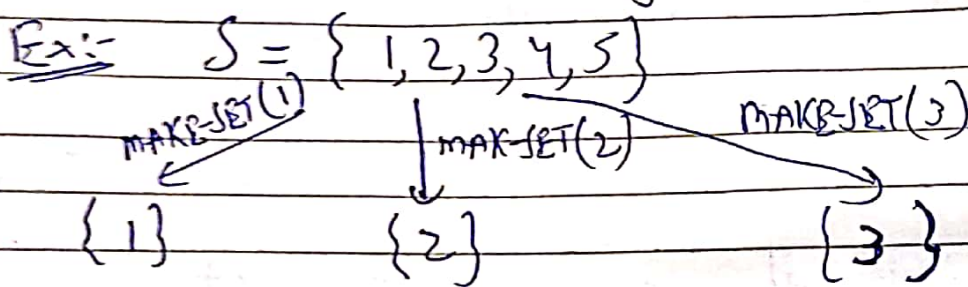 Ex:- S = { 1, 2, 3, 4, 5 }
MAKE-SET(1) MAK-SET(2) MAKE-SET(3)
{ 1 } { 2 } { 3 }